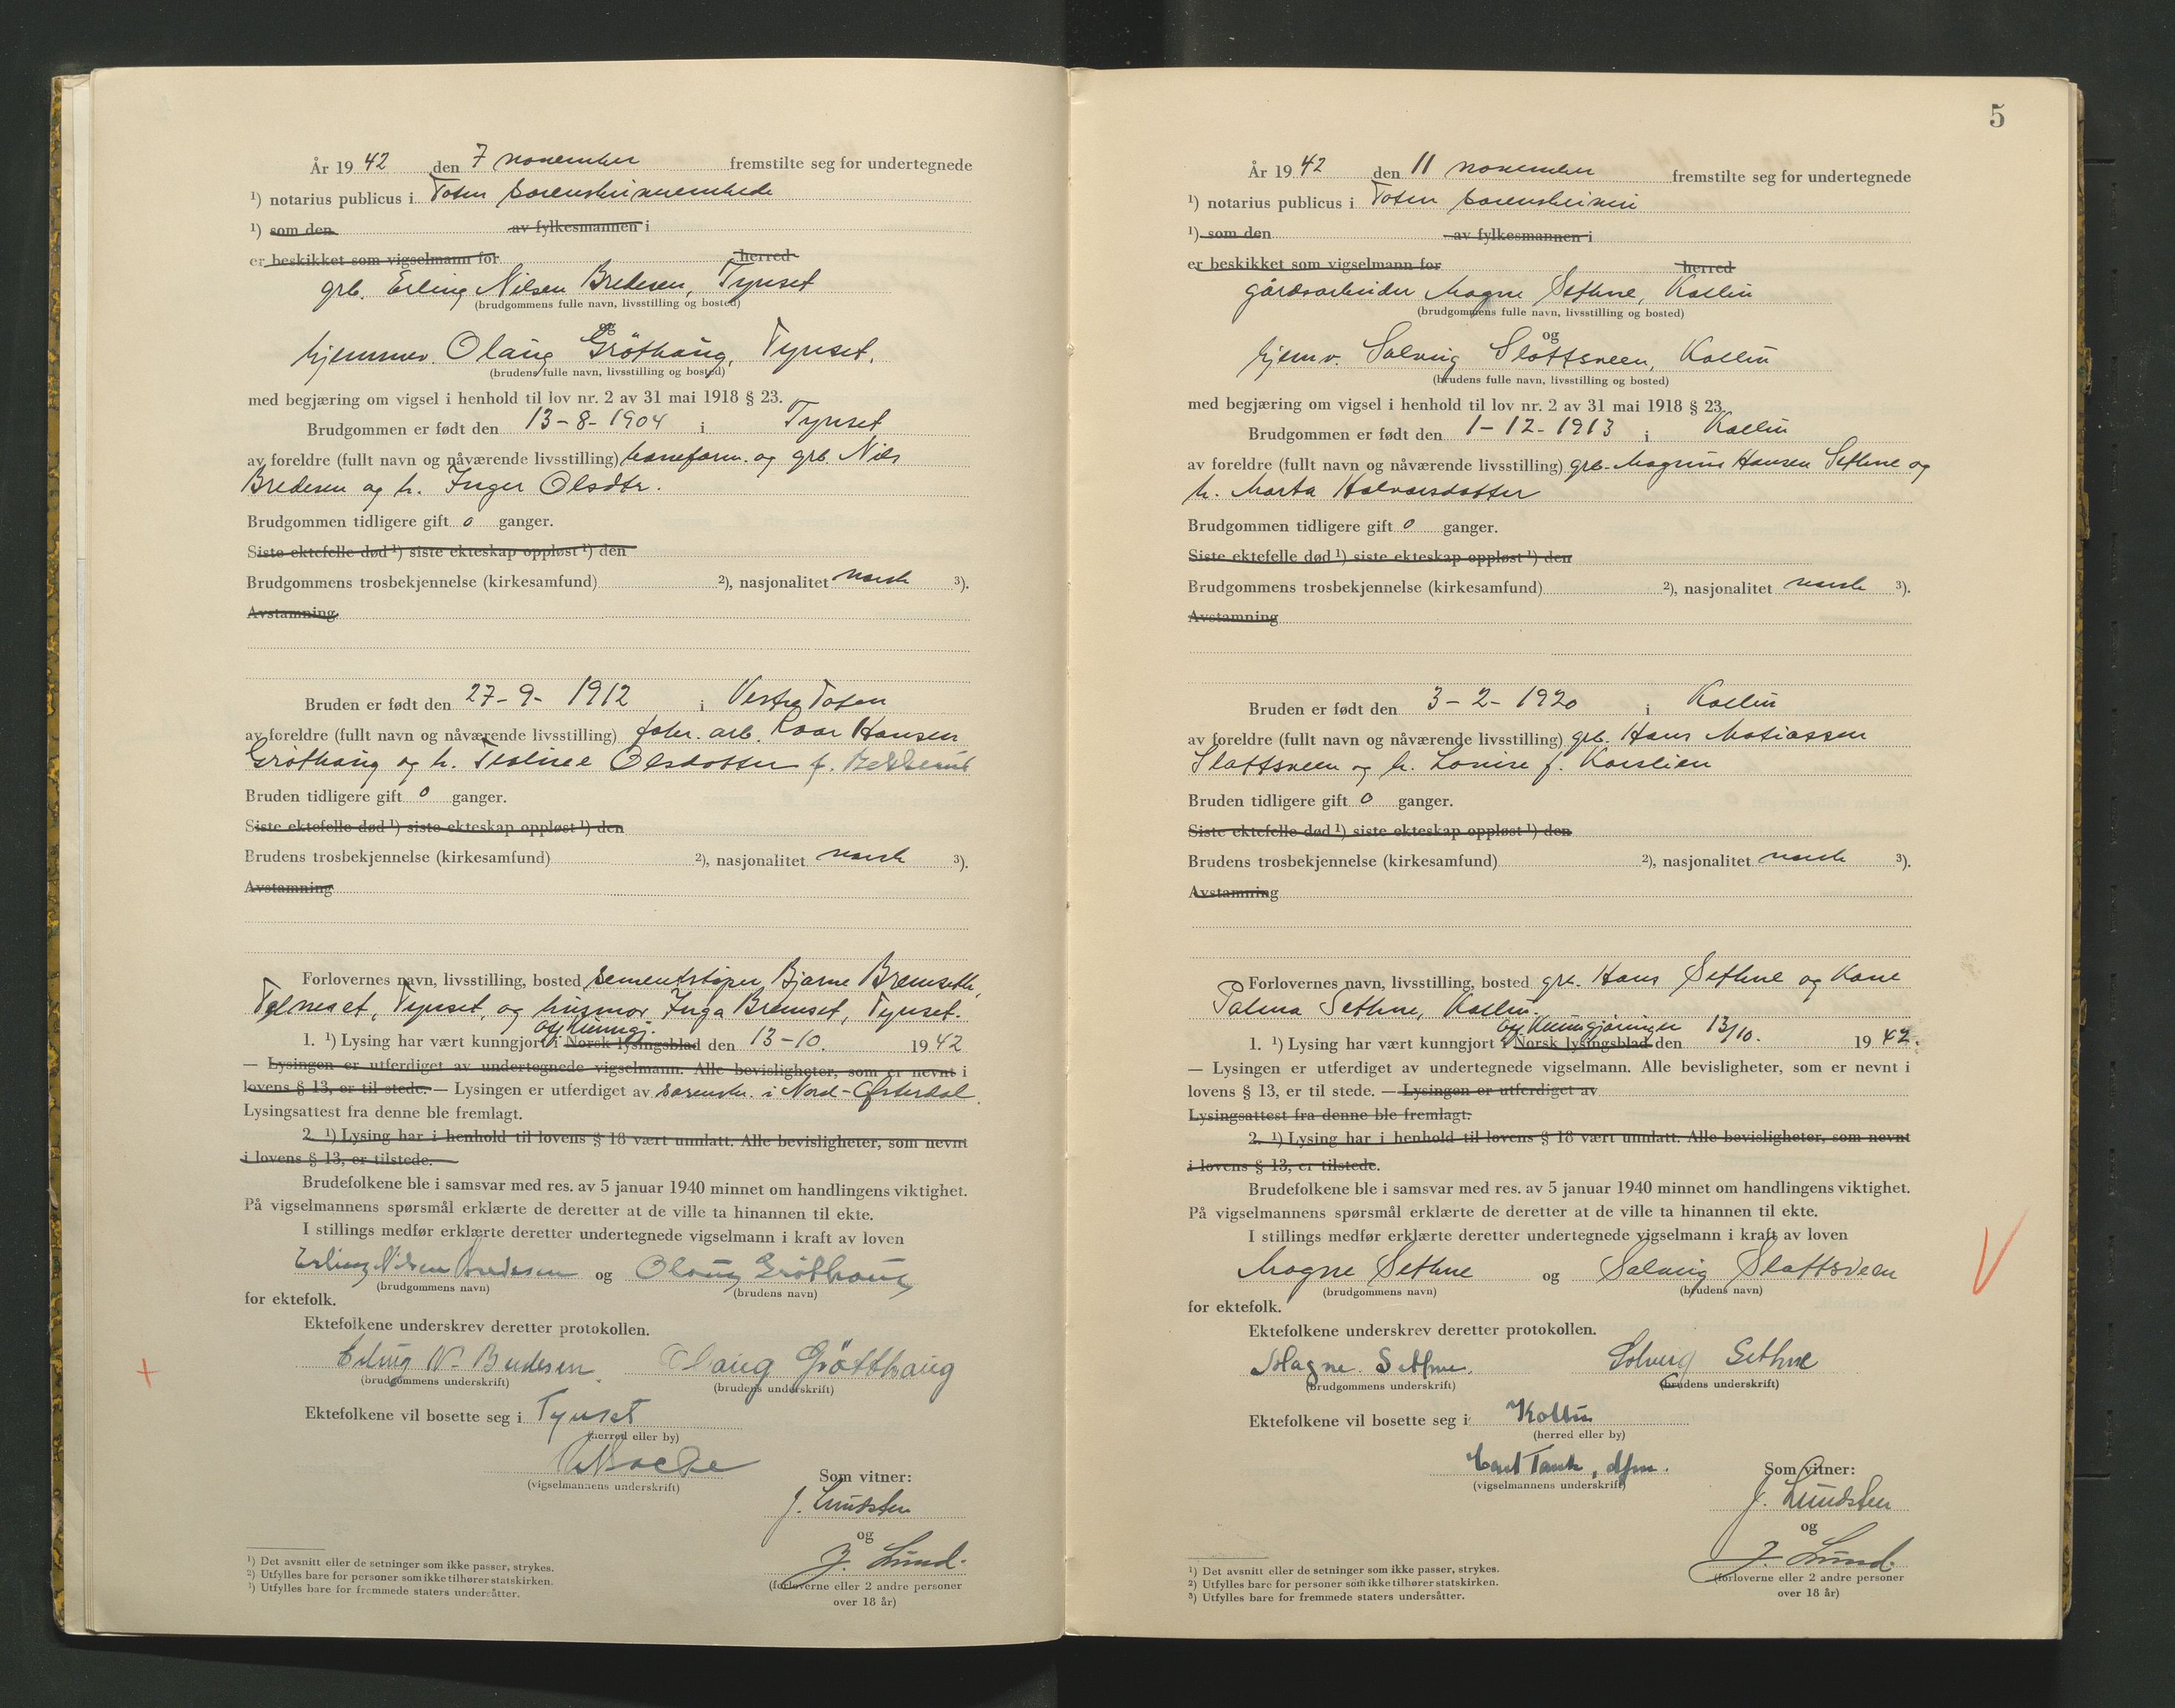 År 19 42 den 7 november fremstilte seg for undertegnede
¹) notarius publicus i Toten sorenskriverembede
¹) som den av fylkesmannen i
er beskikket som vigselmann for herred
grb. Erling Nilsen Bredesen, Tynset
(brudgommens fulle navn, livsstilling og bosted)
og
hjemmev. Olaug Gröthaug, Tynset.
(brudens fulle navn, livsstilling og bosted)
med begjæring om vigsel i henhold til lov nr. 2 av 31 mai 1918 § 23.
Brudgommen er født den 13-8-1904 i Tynset
av foreldre (fullt navn og nåværende livsstilling) baneform. og grb. Nils
Bredesen og h. Inger Olsdtr.
Brudgommen tidligere gift 0 ganger.
Siste ektefelle død ¹) siste ekteskap oppløst ¹) den
Brudgommens trosbekjennelse (kirkesamfund) ²), nasjonalitet norsk ³).
Avstamning
Bruden er født den 27-9-1912 i Vestre Toten
av foreldre (fullt navn og nåværende livsstilling) fabr. arb. Roar Hansen
Gröthaug og h. Olsdotter f.
Bruden tidligere gift 0 ganger.
Siste ektefelle død ¹) siste ekteskap oppløst ¹) den
Brudens trosbekjennelse (kirkesamfund) ²), nasjonalitet norsk ³).
Avstamning
Forlovernes navn, livsstilling, bosted sementstøper Bjarne Bremseth,
Telneset, Tynset, og husmor Inga Bremset, Tynset.
off. kunngj.
1. ¹) Lysing har vært kunngjort i Norsk lysingsblad den 13-10. 19 42
— Lysingen er utferdiget av undertegnede vigselmann. Alle bevisligheter, som er nevnt i
lovens § 13, er til stede. — Lysingen er utferdiget av sorenskr. i Nord-Østerdal.
Lysingsattest fra denne ble fremlagt.
2. ¹) Lysing har i henhold til lovens § 18 vært unnlatt. Alle bevisligheter, som nevnt
i lovens § 13, er tilstede.
Brudefolkene ble i samsvar med res. av 5 januar 1940 minnet om handlingens viktighet.
På vigselmannens spørsmål erklærte de deretter at de ville ta hinannen til ekte.
I stillings medfør erklærte deretter undertegnede vigselmann i kraft av loven
Erling Nilsen Bredesen og Olaug Gröthaug
(brudgommens navn) (brudens navn)
for ektefolk.
Ektefolkene underskrev deretter protokollen.
Erling N. Bredesen. Olaug Grötthaug
(brudgommens underskrift) (brudens underskrift)
Ektefolkene vil bosette seg i Tynset
(herred eller by)
(vigselmannens underskrift)
Som vitner:
J. Lundsten
og
J. Lund.
(forloverne eller 2 andre personer
over 18 år)
¹) Det avsnitt eller de setninger som ikke passer, strykes.
²) Utfylles bare for personer som ikke tilhører statskirken.
³) Utfylles bare for fremmede staters undersåtter.
5
År 19 42 den 11 november fremstilte seg for undertegnede
¹) notarius publicus i Toten sorenskriveri
¹) som den av fylkesmannen i
er beskikket som vigselmann for herred
gårdsarbeider Magne Sethne, Kolbu
(brudgommens fulle navn, livsstilling og bosted)
og
hjemv. Solveig Slottsveen, Kolbu
(brudens fulle navn, livsstilling og bosted)
med begjæring om vigsel i henhold til lov nr. 2 av 31 mai 1918 § 23.
Brudgommen er født den 1-12-1913 i Kolbu
av foreldre (fullt navn og nåværende livsstilling) grb. Magnus Hansen Sethne og
h. Marta Halvorsdatter
Brudgommen tidligere gift 0 ganger.
Siste ektefelle død ¹) siste ekteskap oppløst ¹) den
Brudgommens trosbekjennelse (kirkesamfund) ²), nasjonalitet norsk ³).
Avstamning
Bruden er født den 3-2-1920 i Kolbu
av foreldre (fullt navn og nåværende livsstilling) grb. Hans Matiassen
Slottsveen og h. Lovise f. Karslien
Bruden tidligere gift 0 ganger.
Siste ektefelle død ¹) siste ekteskap oppløst ¹) den
Brudens trosbekjennelse (kirkesamfund) ²), nasjonalitet norsk ³).
Avstamning
Forlovernes navn, livsstilling, bosted grb. Hans Sethne og kone
Palma Sethne, Kolbu.
off. Kunngjøringer
1. ¹) Lysing har vært kunngjort i Norsk lysingsblad den 13/10. 19 42.
— Lysingen er utferdiget av undertegnede vigselmann. Alle bevisligheter, som er nevnt i
lovens § 13, er til stede. — Lysingen er utferdiget av
Lysingsattest fra denne ble fremlagt.
2. ¹) Lysing har i henhold til lovens § 18 vært unnlatt. Alle bevisligheter, som nevnt
i lovens § 13, er tilstede.
Brudefolkene ble i samsvar med res. av 5 januar 1940 minnet om handlingens viktighet.
På vigselmannens spørsmål erklærte de deretter at de ville ta hinannen til ekte.
I stillings medfør erklærte deretter undertegnede vigselmann i kraft av loven
Magne Sethne og Solveig Slottsveen
(brudgommens navn) (brudens navn)
for ektefolk.
Ektefolkene underskrev deretter protokollen.
Magne Sethne. Solveig Sethne
(brudgommens underskrift) (brudens underskrift)
Ektefolkene vil bosette seg i Kolbu
(herred eller by)
Carl Tank, dfm.
(vigselmannens underskrift)
Som vitner:
J. Lundsten
og
J. Lund.
(forloverne eller 2 andre personer
over 18 år)
¹) Det avsnitt eller de setninger som ikke passer, strykes.
²) Utfylles bare for personer som ikke tilhører statskirken.
³) Utfylles bare for fremmede staters undersåtter.